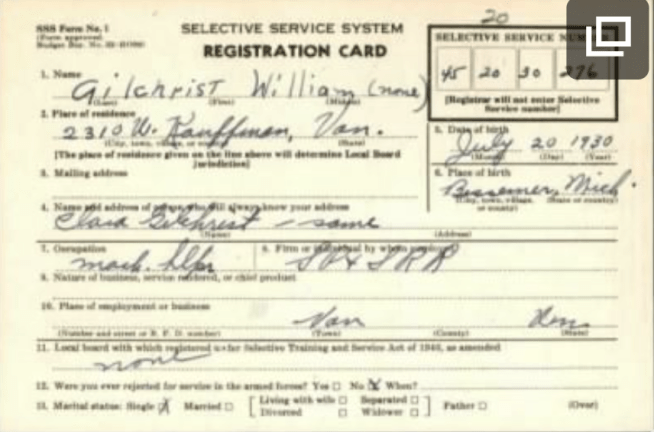 20
SSS Form No. 1
(Form approved)
SELECTIVE SERVICE SYSTEM
REGISTRATION CARD
SELECTIVE SERVICE
45 20 30 276
[Registrar will not enter Selective
Service number]
1. Name Gilchrist William (none)
(Last) (First) (Middle)
2. Place of residence
2310 W. Kauffman, Van.
(City, town, village, or county) (State)
[The place of residence given on the line above will determine Local Board
jurisdiction]
5. Date of birth
July 20 1930
(Month) (Day) (Year)
3. Mailing address
6. Place of birth
Bessemer, Mich.
(City, town, village, or county) (State or country)
4. Name and address of person who will always know your address
Clara Gilchrist - same
(Name) (Address)
7. Occupation
mach. hlpr
8. Firm or individual by whom employed
SP&S RR
9. Nature of business, service rendered, or chief product
10. Place of employment or business
Van
(Number and street or R. F. D. number) (Town) (County) (State)
11. Local board with which registered under Selective Training and Service Act of 1940, as amended
none
12. Were you ever rejected for service in the armed forces? Yes □ No ☒ When?
13. Marital status: Single ☒ Married □ [Living with wife □ Separated □
Divorced □ Widower □] Father □ (Over)